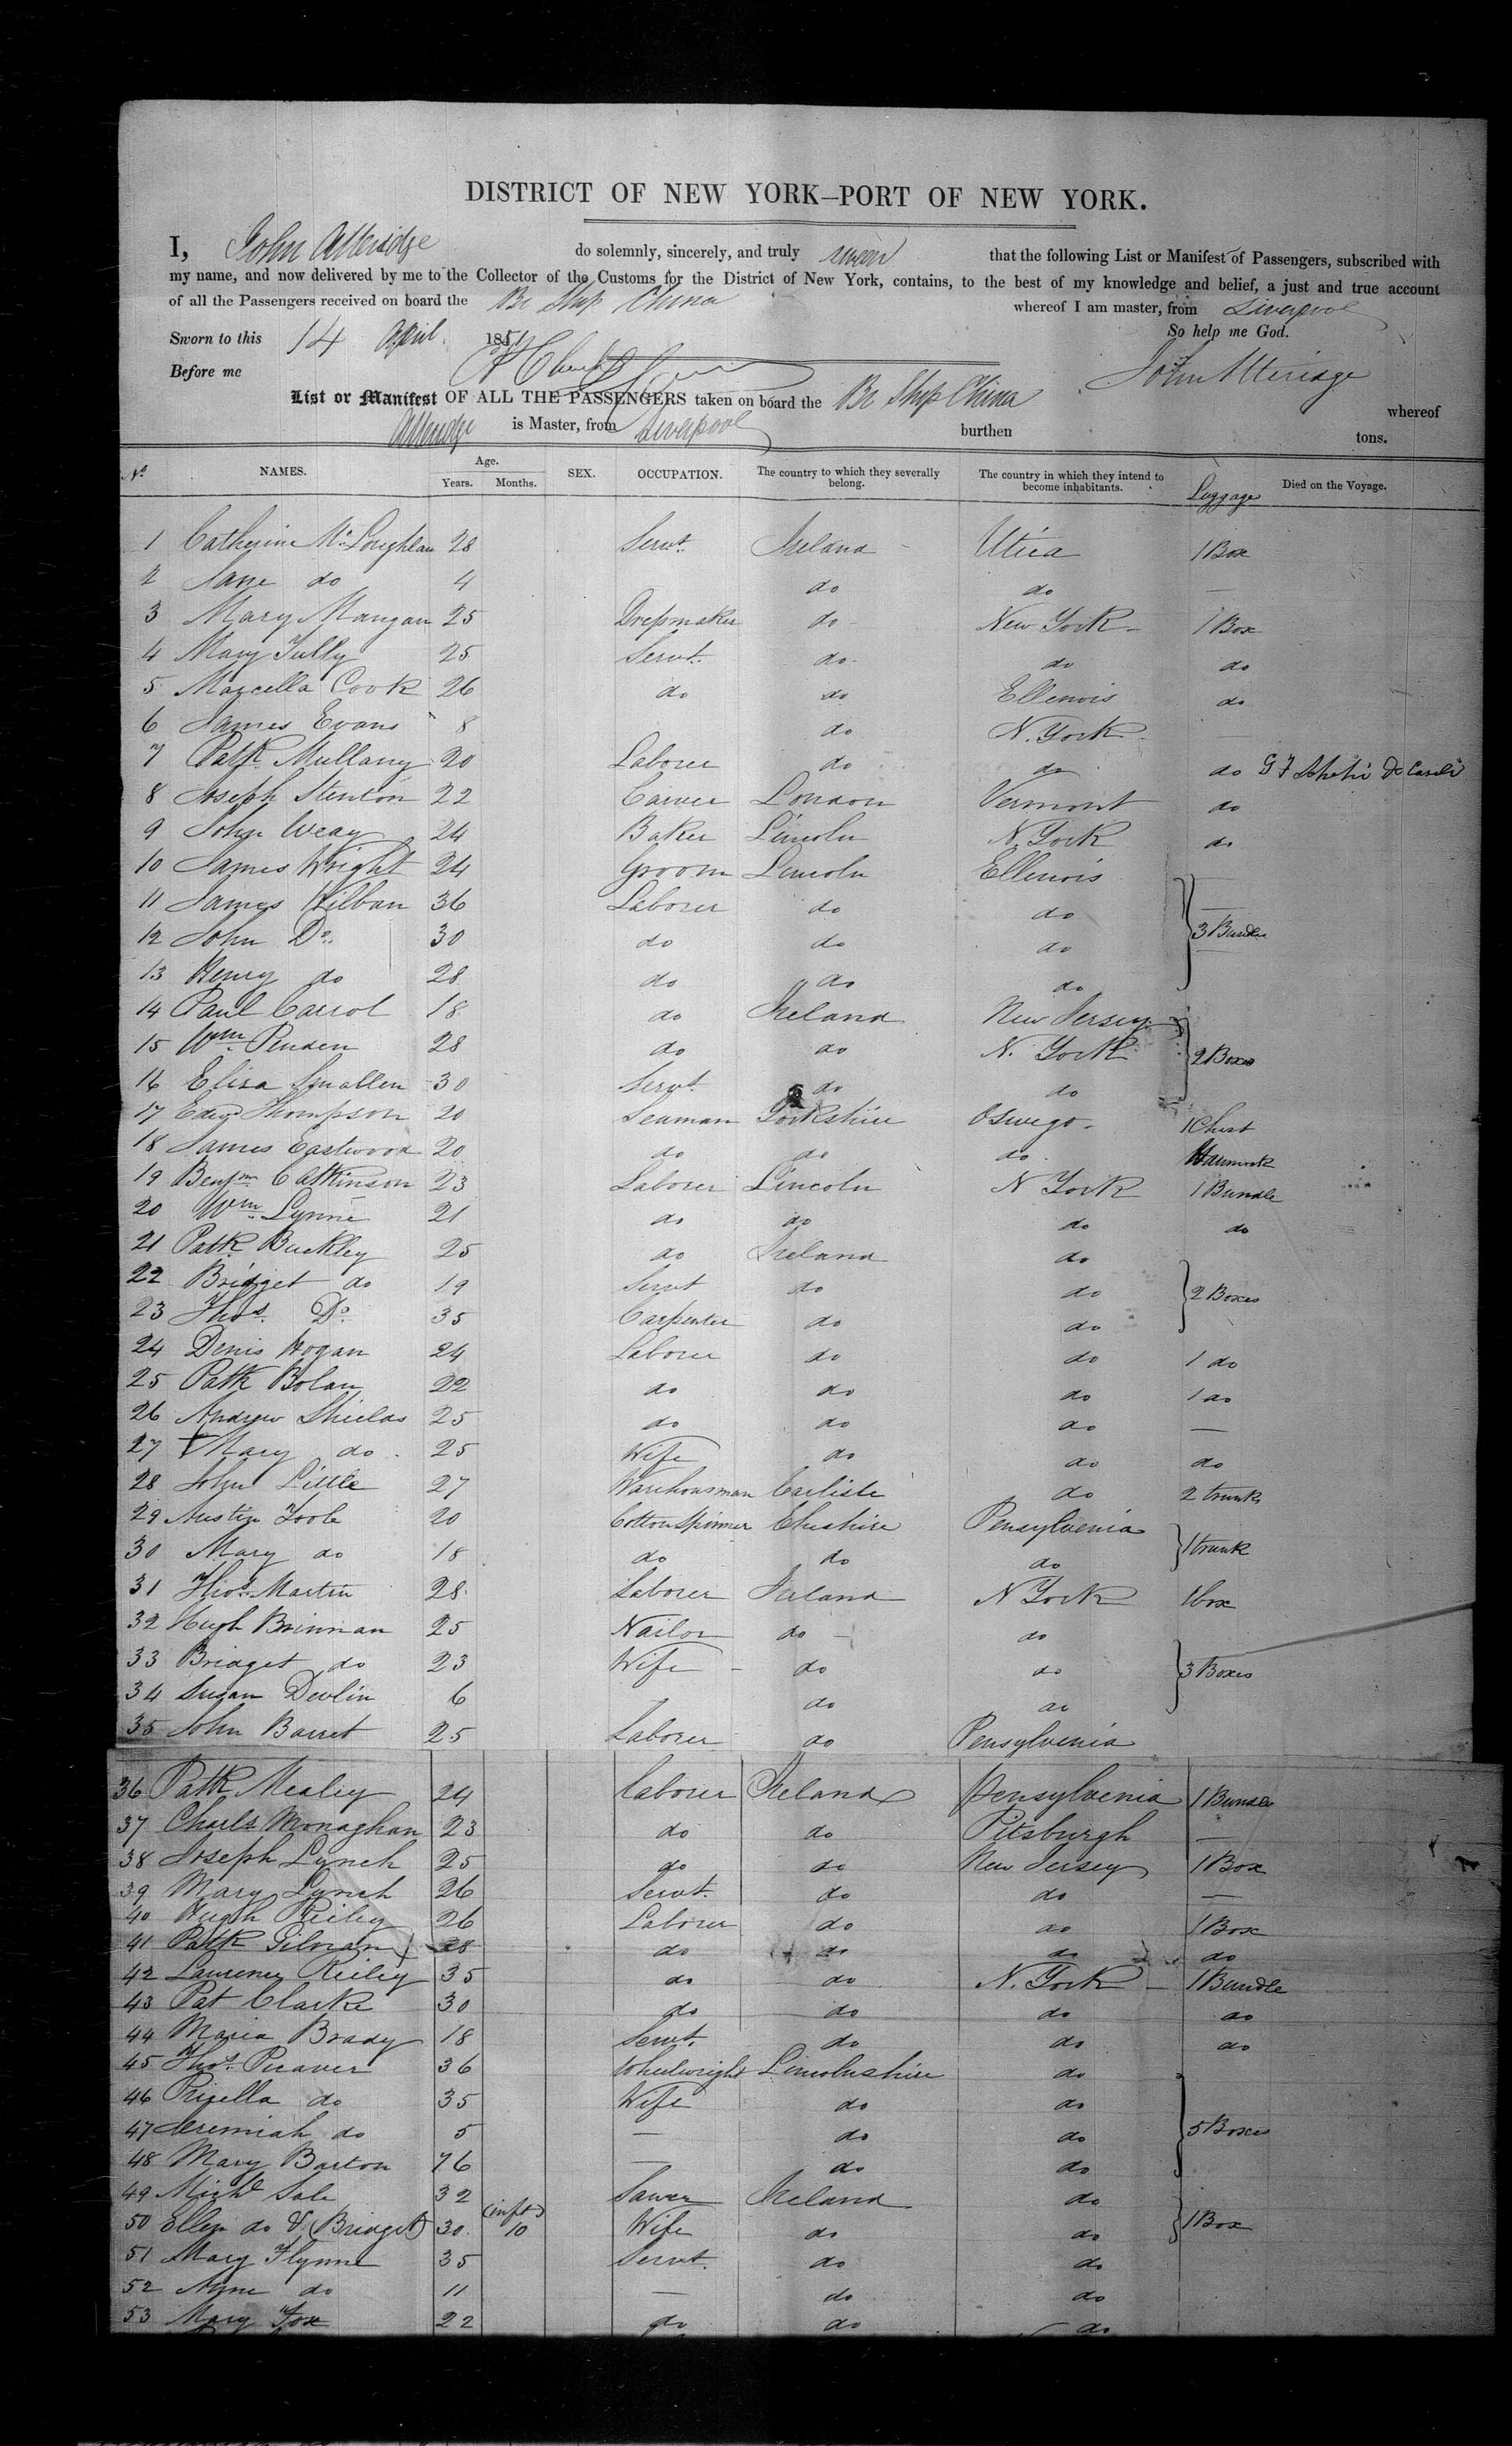 DISTRICT OF NEW YORK—PORT OF NEW YORK.
I, John Atteridge do solemnly, sincerely, and truly swear that the following List or Manifest of Passengers, subscribed with
my name, and now delivered by me to the Collector of the Customs for the District of New York, contains, to the best of my knowledge and belief, a just and true account
of all the Passengers received on board the Br Ship China whereof I am master, from Liverpool
Sworn to this 14 April 1851 So help me God.
Before me John Atteridge
List or Manifest OF ALL THE PASSENGERS taken on board the Br Ship China whereof
Atteridge is Master, from Liverpool burthen tons.
No NAMES. Age. Years. Months. SEX. OCCUPATION. The country to which they severally belong. The country in which they intend to become inhabitants. Luggage Died on the Voyage.
1 Catherine McLoughlan 28 Servt. Ireland Utica 1 Box
2 Jane do 4 do do —
3 Mary Mangan 25 Dressmaker do New York 1 Box
4 Mary Tully 25 Servt. do do do
5 Marcella Cook 26 do do Ellenois do
6 James Evans 8 do N. York —
7 Patk Mullany 20 Laborer do do do
8 Joseph Stenton 22 Carver London Vermont do
9 John Weay 24 Baker Lincoln N. York do
10 James Wright 24 Groom Lincoln Ellenois
11 James Wilban 36 Laborer do do
12 John Do. 30 do do do 3 Bundle
13 Henry do 28 do do do
14 Paul Carrol 18 do Ireland New Jersey
15 Wm. Penden 28 do do N. York 2 Boxes
16 Eliza Smallen 30 Servt. do do
17 Edwd Thompson 20 Seaman Yorkshire Oswego 1 Chest
18 James Eastwood 20 do do do Hammock
19 Benjm C Atkinson 23 Laborer Lincoln N York 1 Bundle
20 Wm. Lynne 21 do do do do
21 Patk Buckley 25 do Ireland do
22 Bridget do 19 Servt do do 2 Boxes
23 Thos. Do. 35 Carpenter do do
24 Denis Hogan 24 Laborer do do 1 do
25 Patk Bolan 22 do do do 1 do
26 Andrew Shields 25 do do do —
27 Mary do 25 Wife do do do
28 John Little 27 Warehousman Carlisle do 2 trunks
29 Austin Toole 20 Cotton Spinner Cheshire Pensylvenia
30 Mary do 18 do do do 1 trunk
31 Thos. Martin 28 Laborer Ireland N York 1 box
32 Hugh Brinnan 25 Nailor do do
33 Bridget do 23 Wife do do 3 Boxes
34 Susan Devlin 6 — do do
35 John Barret 25 Laborer do Pensylvenia
36 Patk Mealey 24 Laborer Ireland Pensylvenia 1 Bundle
37 Charls Monaghan 23 do do Pitsburgh —
38 Joseph Lynch 25 do do New Jersey 1 Box
39 Mary Lynch 26 Servt. do do —
40 Hugh Reiley 26 Laborer do do 1 Box
41 Patk Gilvran 28 do do do do
42 Laurence Reiley 35 do do N. York 1 Bundle
43 Pat Clarke 30 do do do do
44 Maria Brady 18 Servt. do do do
45 Thos. Picaver 36 Wheelwright Lincolnshire do
46 Prisella do 35 Wife do do
47 Jeremiah do 5 — do do 5 Boxes
48 Mary Barton 76 — do do
49 Michl Sale 32 Sawer Ireland do
50 Ellen do & (Bridget) 30 (inft) 10 Wife do do 1 Box
51 Mary Flynne 35 Servt. do do
52 Anne do 11 — do do
53 Mary Fox 22 do do do